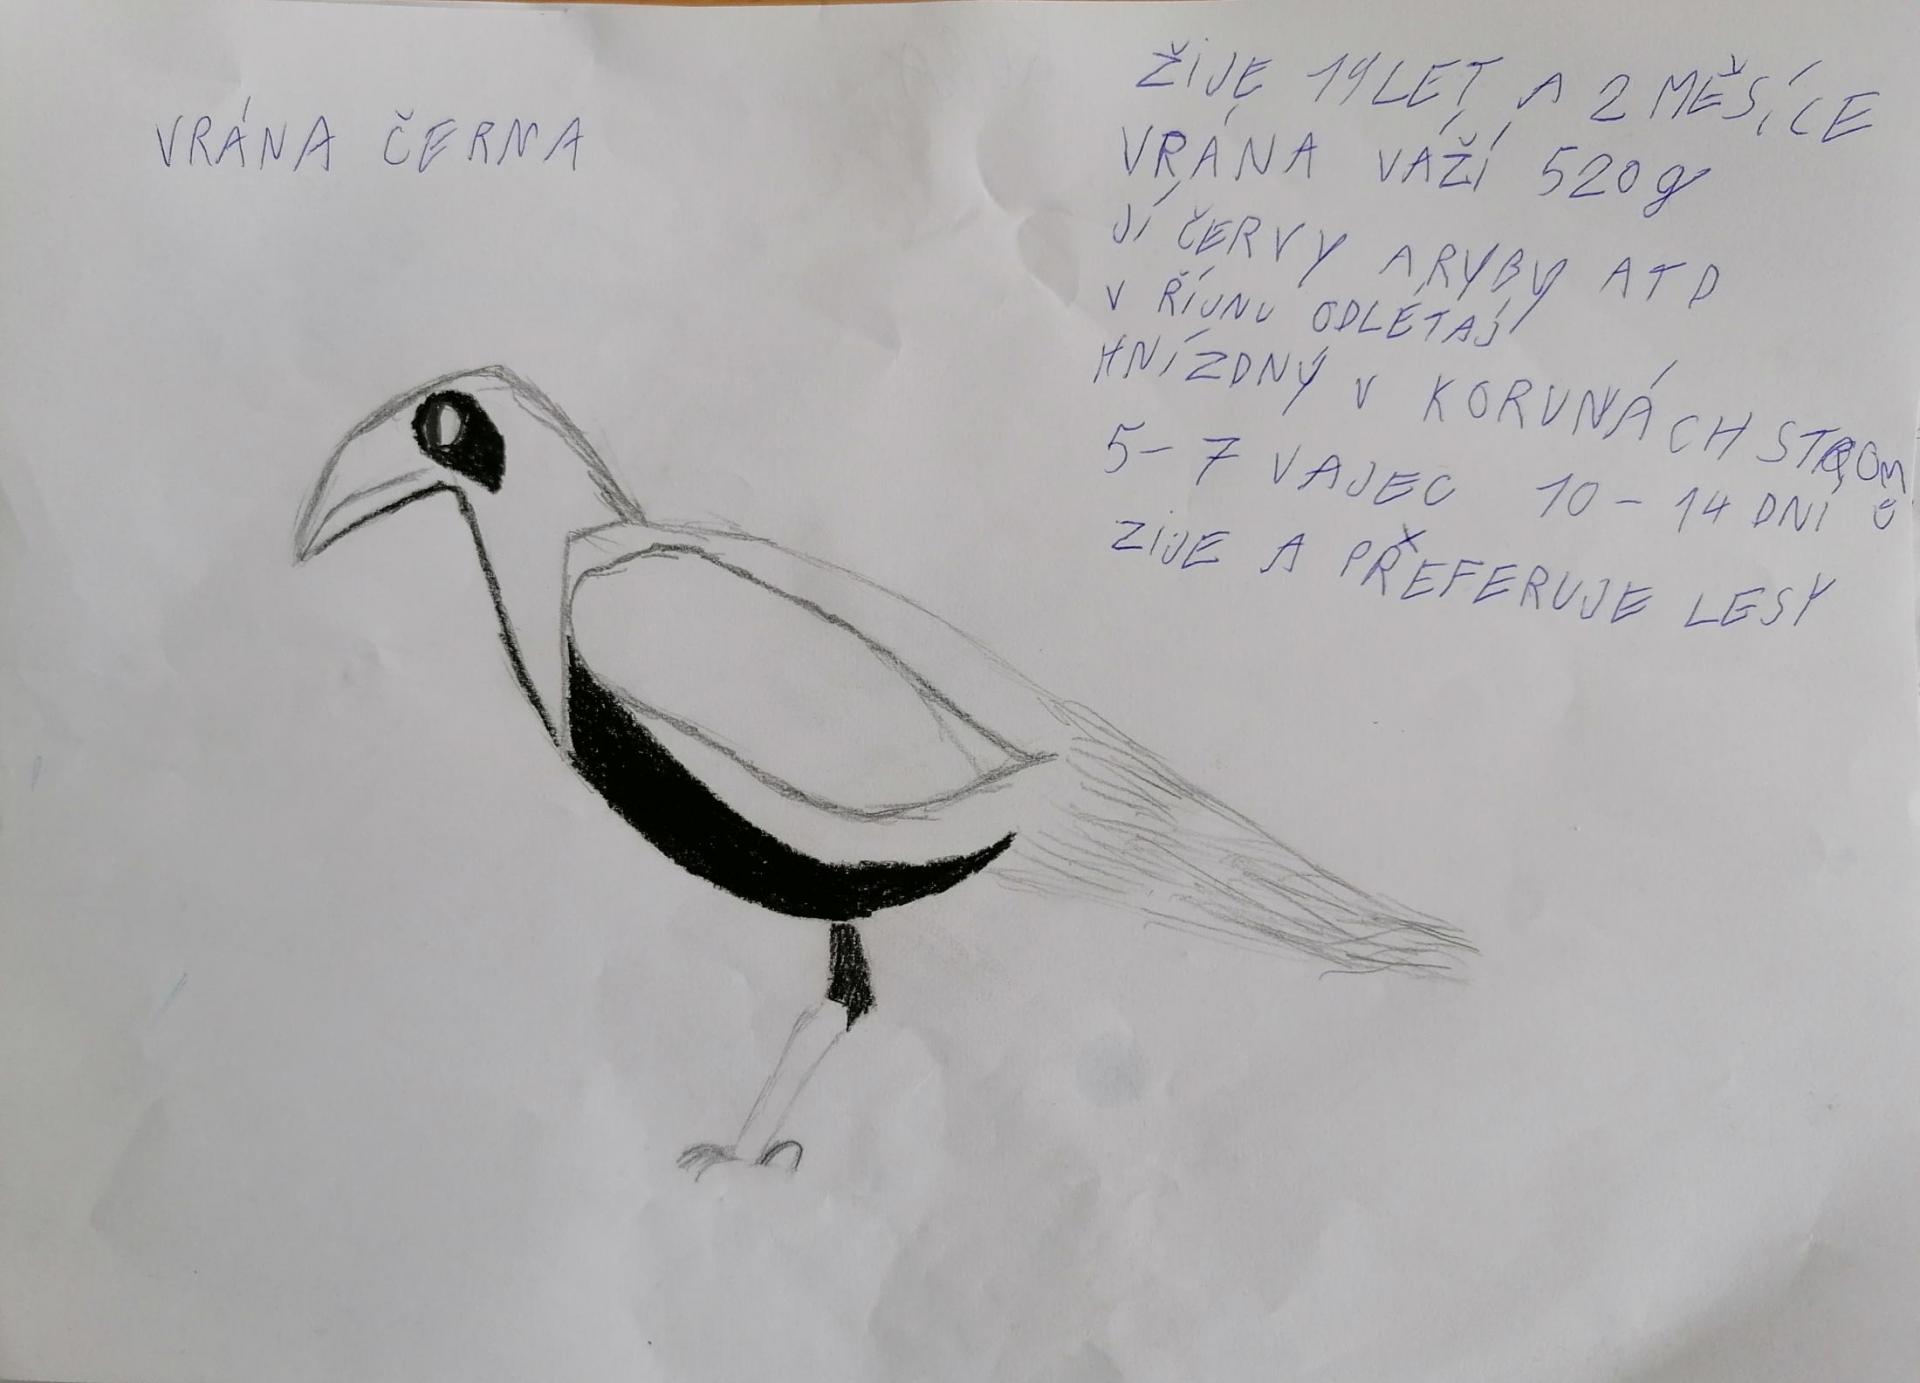 VRÁNA ČERNA
ŽIJE 19 LET A 2 MĚSÍCE
VRÁNA VÁŽÍ 520g
JÍ ČERVY A RYBY ATD
V ŘÍJNU ODLÉTAJ
HNÍZDNÝ V KORUNÁCH STROMŮ
5-7 VAJEC 10-14 DNÍ
ZIJE A PŘEFERUJE LESY